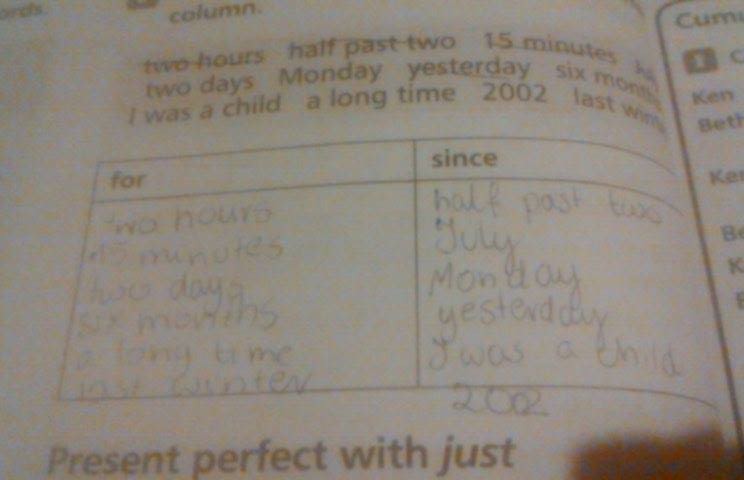 ords.
column.
two hours half past two 15 minutes
two days Monday yesterday six months
I was a child a long time 2002 last
for since
two hours half past two
15 minutes July
two days Monday
six months yesterday
a long time I was a child
last winter 2002
Present perfect with just
1
Ken
Beth